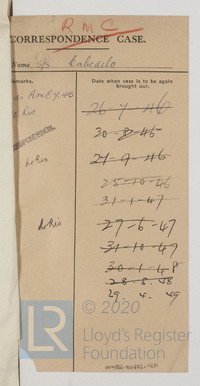 R M C
CORRESPONDENCE CASE.
Name S/S Cabedelo
Remarks.
Date when case is to be again brought out.
26-7-46
Rio
30-8-46
21-9-46
do Rio
25-10-46
31-1-47
do Rio
27-6-47
31-10-47
30-1-48
28-5-48
29.4.49
LR © 2020
Lloyd's Register
Foundation